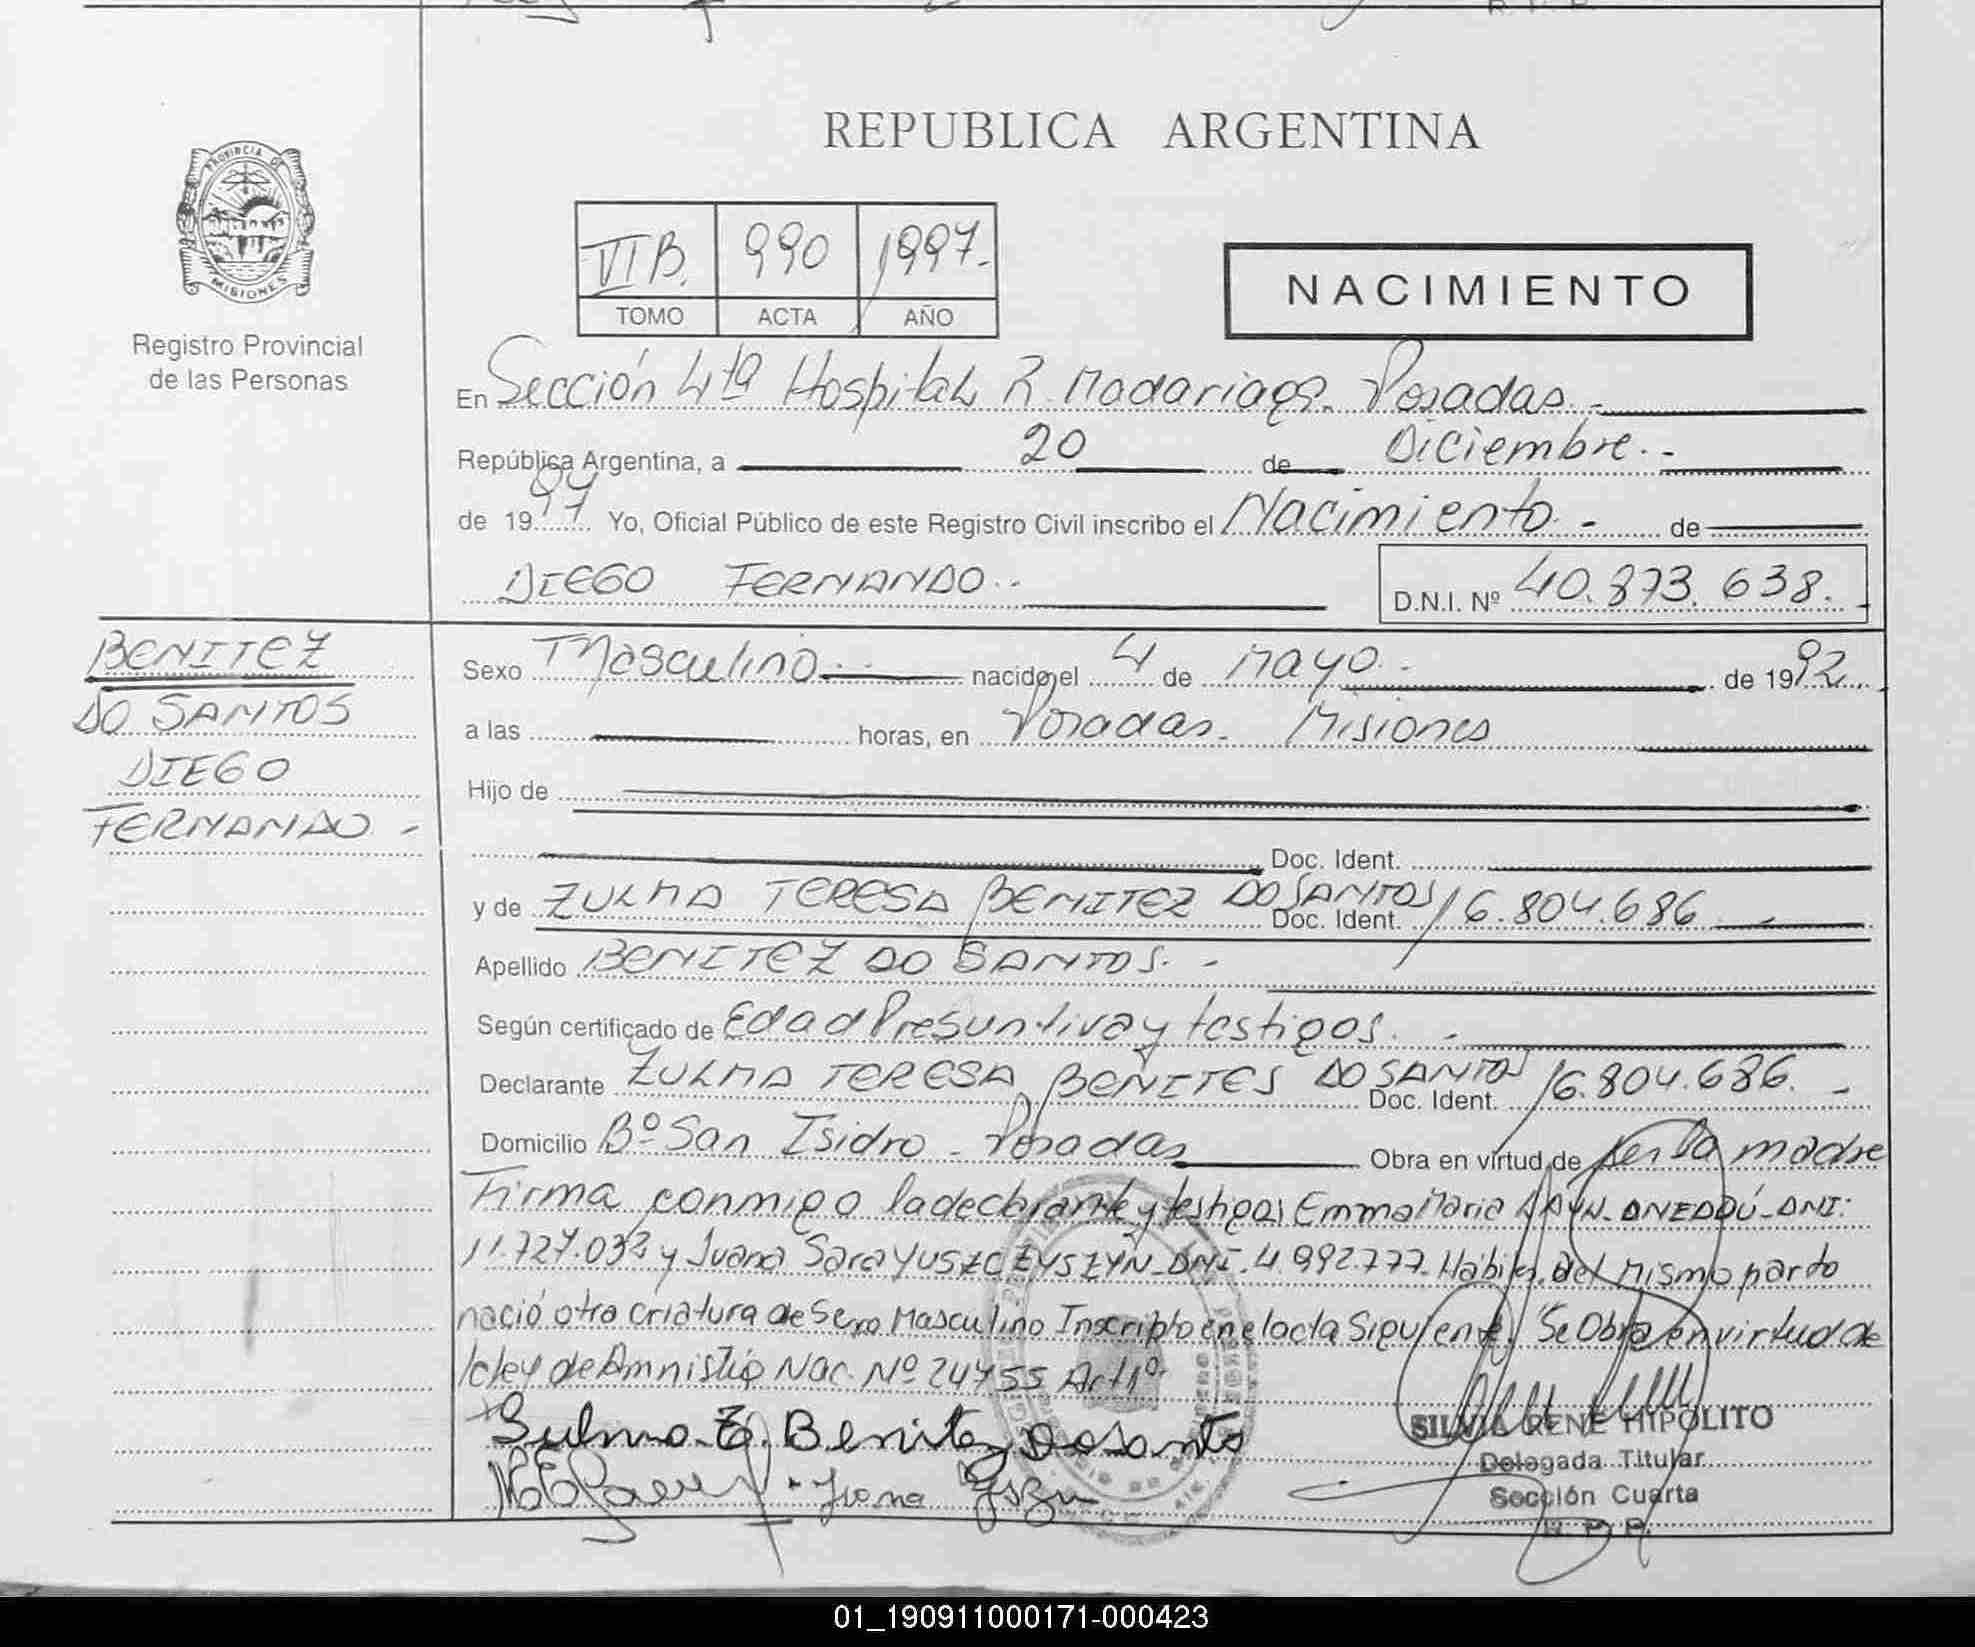 PROVINCIA DE
MISIONES
Registro Provincial
de las Personas
REPUBLICA ARGENTINA
VI B. 990 1997.-
TOMO ACTA AÑO
NACIMIENTO
En Sección 4ta Hospital R. Madariaga. Posadas.-
República Argentina, a 20 de Diciembre.-
de 1997 Yo, Oficial Público de este Registro Civil inscribo el Nacimiento.- de
DIEGO FERNANDO.-
D.N.I. Nº 40.873.638.-
BENITEZ
DO SANTOS
DIEGO
FERNANDO -
Sexo Masculino.- nacido el 4 de Mayo.- de 1992.
a las horas, en Posadas. Misiones
Hijo de
Doc. Ident.
y de ZULMA TERESA BENITEZ DO SANTOS Doc. Ident. 16.804.686 -
Apellido BENITEZ DO SANTOS.-
Según certificado de Edad Presuntiva y testigos. -
Declarante ZULMA TERESA BENITES DO SANTOS Doc. Ident. 16.804.686. -
Domicilio Bº San Isidro - Posadas Obra en virtud de ser la madre
Firma conmigo la declarante y testigos Emma Maria DNI:
11.727.032 y Juana Sara YUSZCZYSZYN - DNI. 4.992.777. Hábiles. del mismo parto
nació otra criatura de Sexo Masculino Inscripto en el acta Siguiente. Se Obra en virtud de
la ley de Amnistia Nac. Nº 24755 Art 1º.
Sulma T. Benitez Dosanto
Juana
SILVIA RENE HIPOLITO
Delegada Titular
Sección Cuarta
R. P. P.
01_190911000171-000423